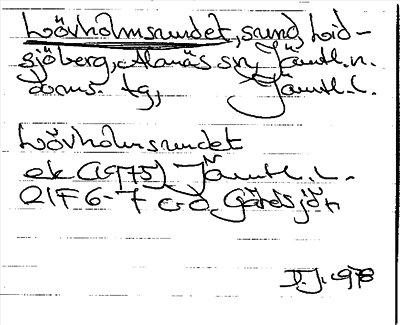 Lövholmsundet, sund vid
Sjöberg, Alanäs sn, Jämtl. n.
doms. tg, Jämtl. l.
Lövholmsundet
ek (1975) Jämtl. l.
21F 6-7 c-d Gärdsjön
D.J. 1978